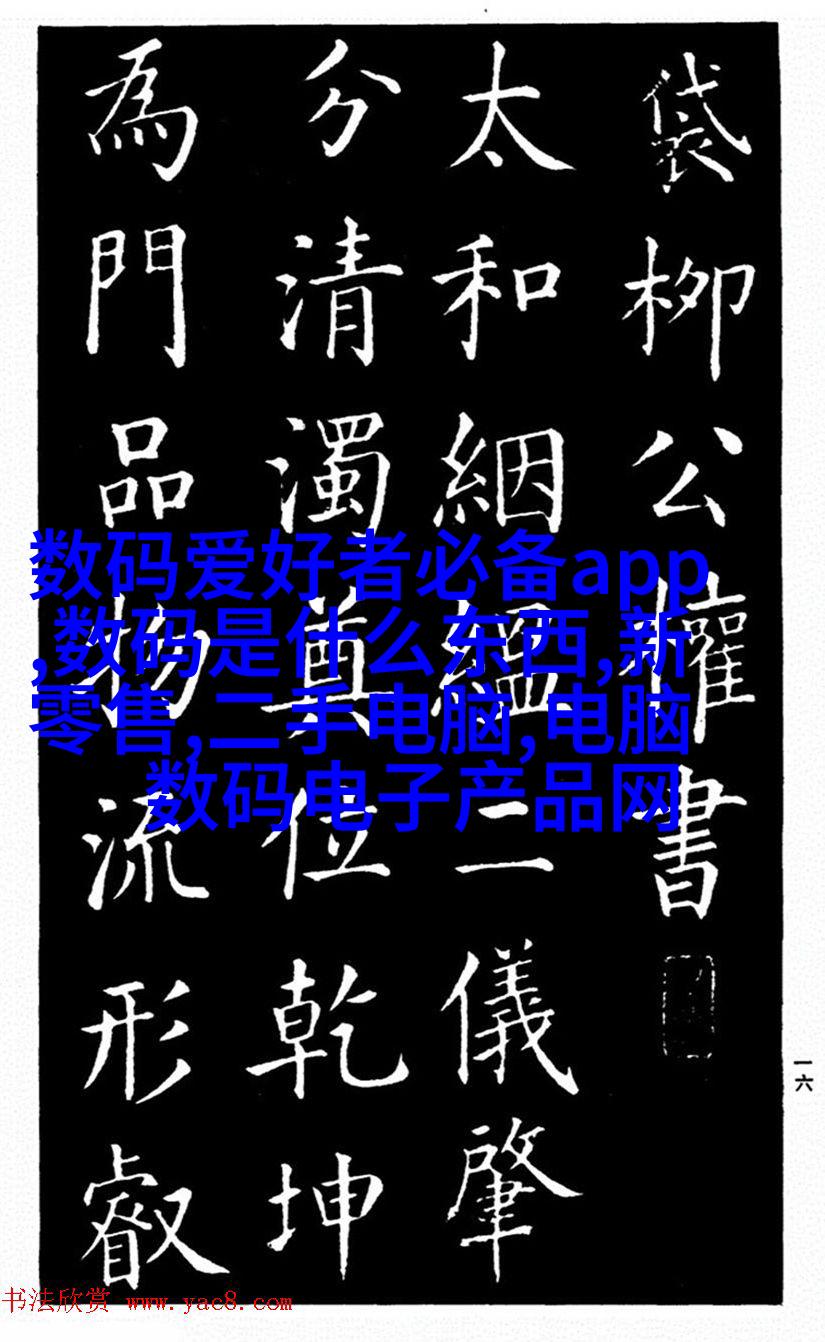 袋柳公權書
太和絪緼二儀肇
分清濁奠位乾坤
為門品物流形叡
数码爱好者必备app
,数码是什么东西,新
零售,二手电脑,电脑
数码电子产品网
一六
书法欣赏 www.yac8.com